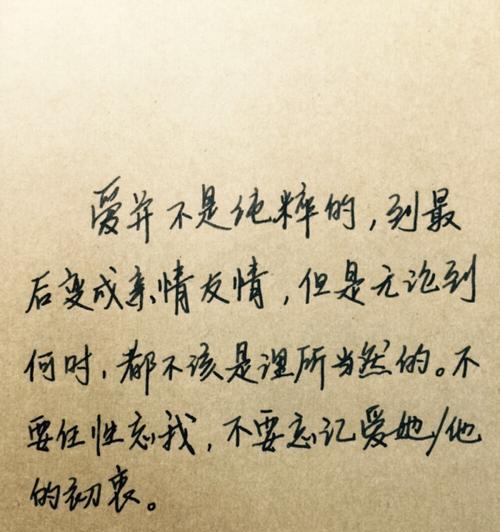 爱并不是纯粹的，到最
后变成亲情友情，但是无论到
何时，都不该是理所当然的。不
要任性忘我，不要忘记爱她/他
的初衷。